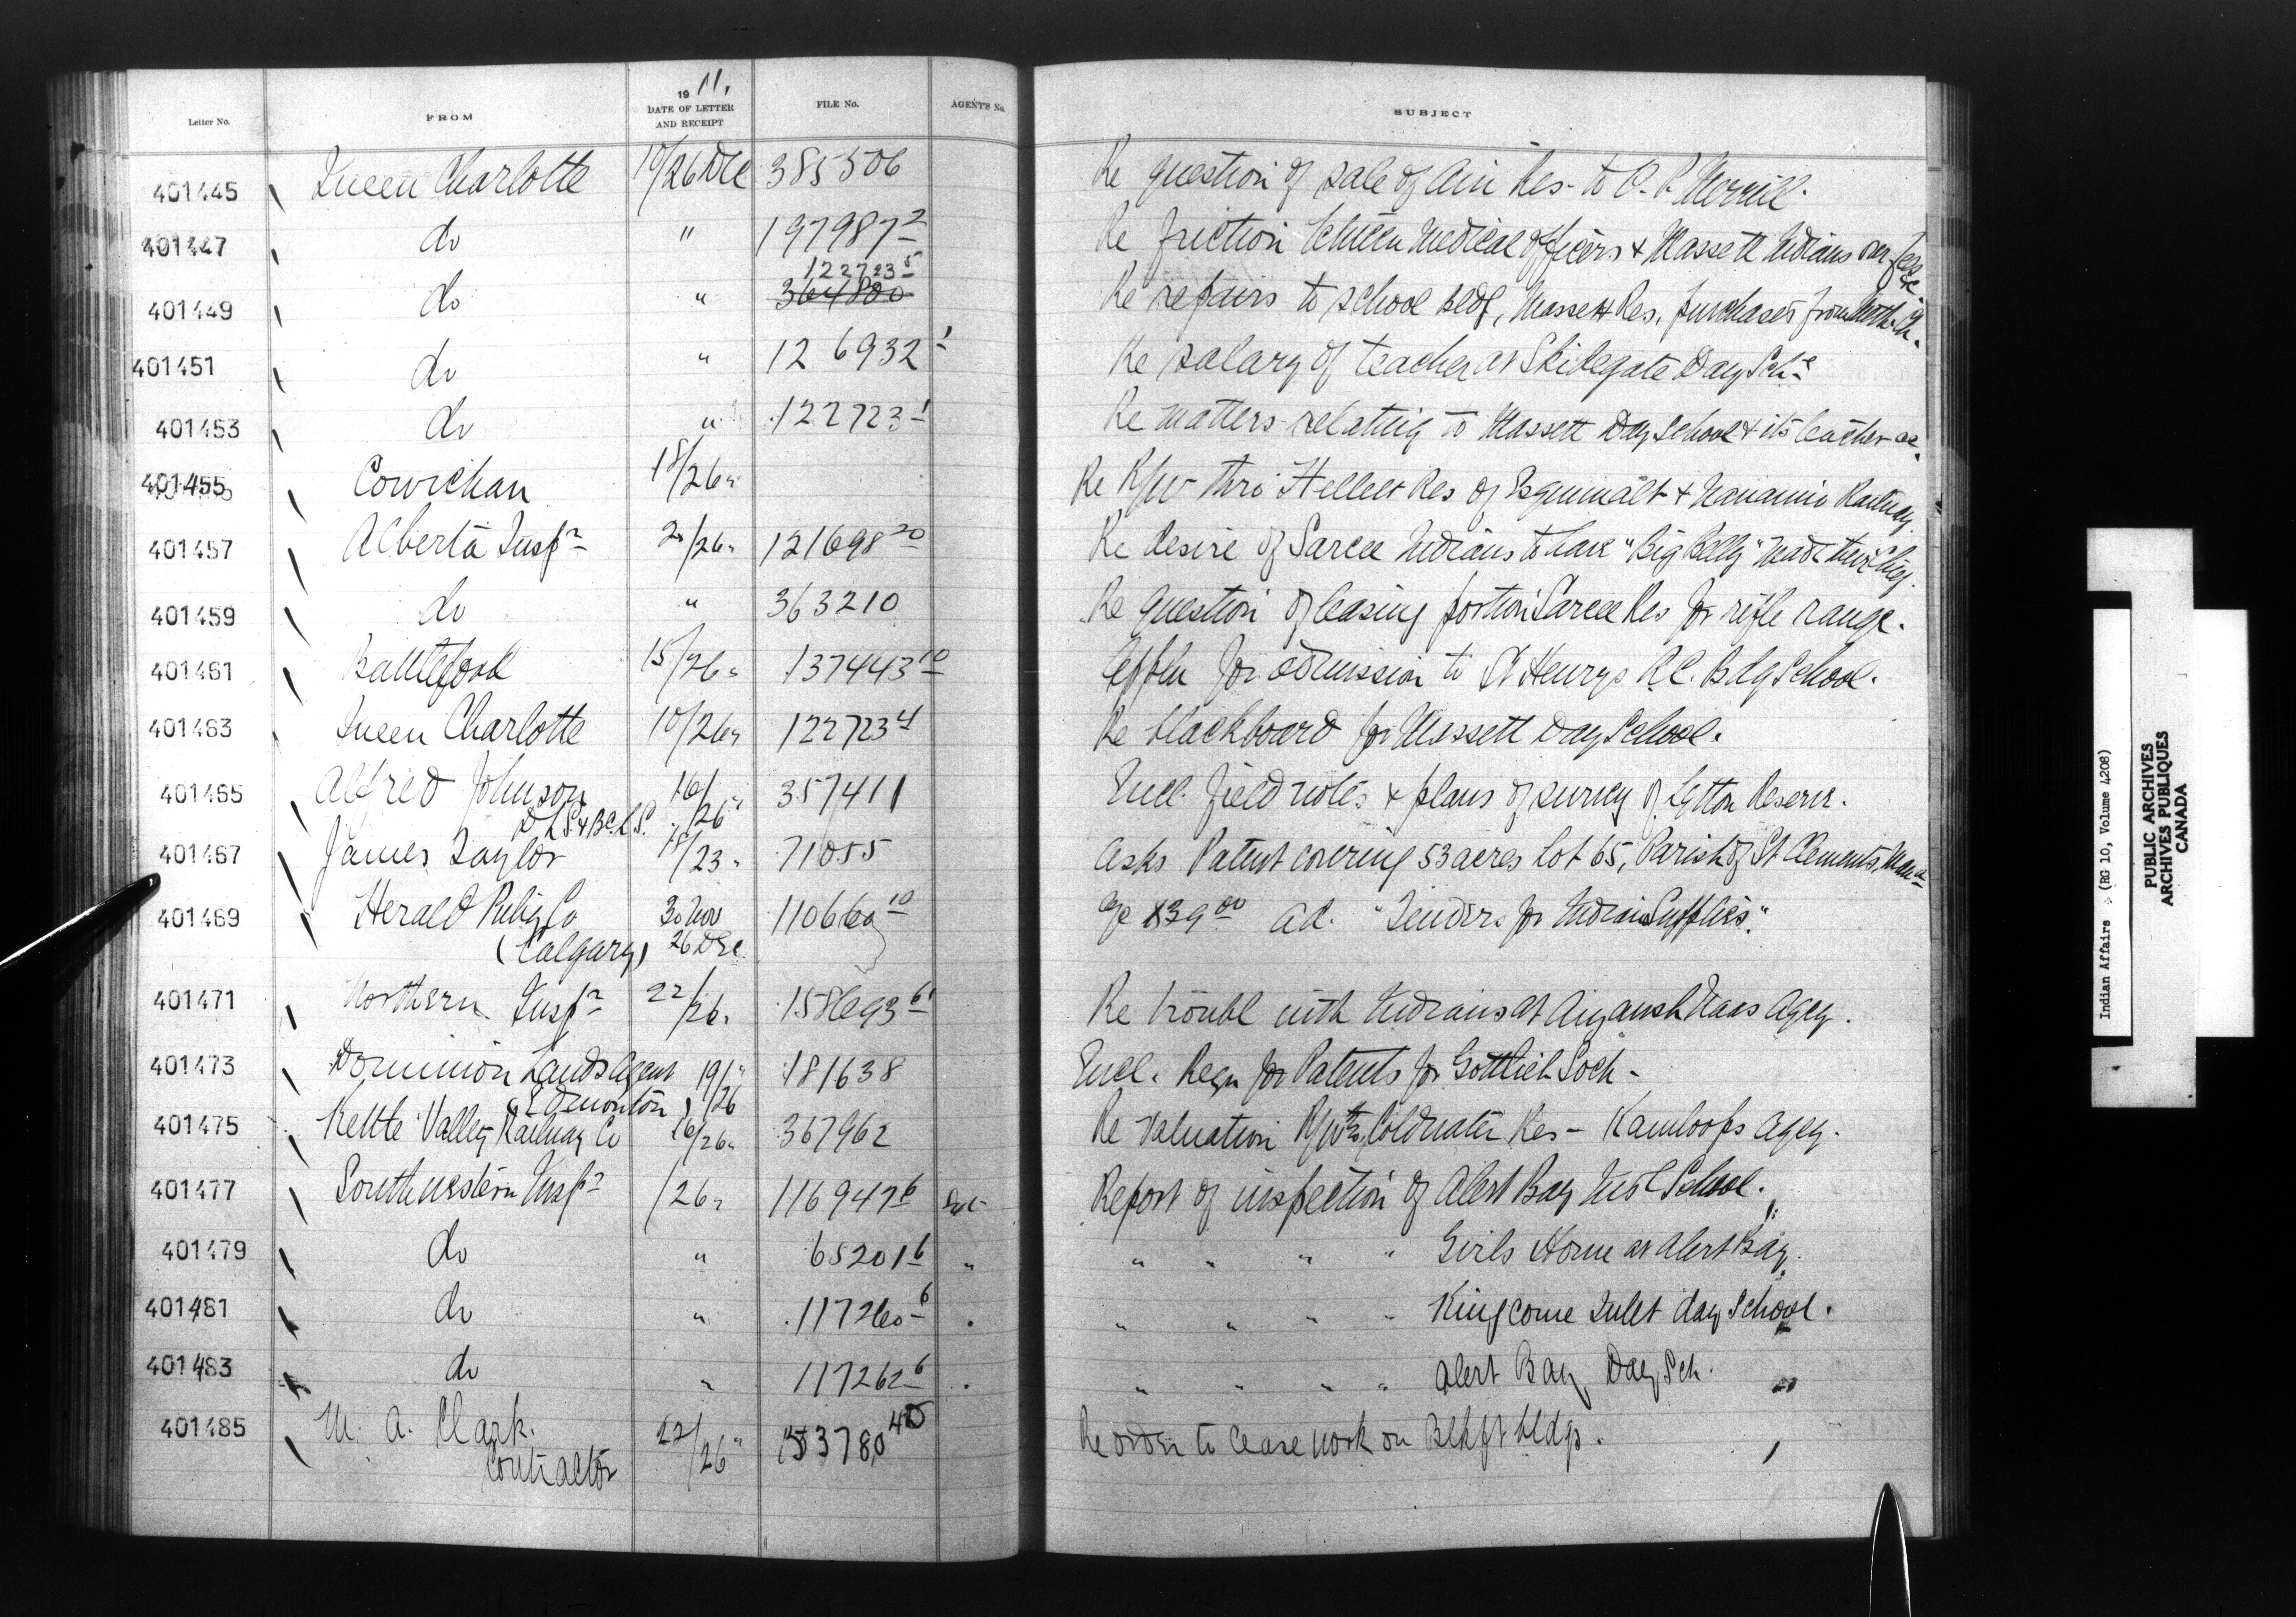 Letter No. FROM 1911. DATE OF LETTER AND RECEIPT FILE No. AGENT'S No. SUBJECT
401445 Queen Charlotte 10/26 Dec 385506 Re question of sale of Ain Res. to O. P. Merrill.
401447 do " 197987-2 Re friction between Medical Officers & Massett Indians over fees &c
401449 do " 122723-5 364800 Re repairs to school bldg, Massett Res. purchased from Meth. Ch.
401451 do " 126932-1 Re salary of teacher at Skidegate Day Schl
401453 do " 122723-1 Re matters relating to Massett Day School & its teacher &c.
401455 Cowichan 18/26 " Re R/W thro' Hellelt Res of Esquimalt & Nanaimo Railway.
401457 Alberta Inspr 20/26 " 121698-20 Re desire of Sarcee Indians to have "Big Belly" made their Chief.
401459 do " 363210 Re question of leasing portion Sarcee Res for rifle range.
401461 Battleford 15/26 " 137443-10 Appln for admission to St Henrys R.C. Bdg School.
401463 Queen Charlotte 10/26 " 122723-4 Re blackboard for Massett Day School.
401465 Alfred Johnson D.L.S. & B.C.L.S. 16/26 " 357411 Encl. field notes & plans of survey of Lytton Reserve.
401467 James Taylor 18/23 " 71055 Asks Patent covering 53 acres lot 65, Parish of St Clements, Man
401469 Herald Pubg Co (Calgary) 30 Nov 26 Dec 110660-10 a/c $39.00 ad. "Tenders for Indian Supplies".
401471 Northern Inspr 22/26 " 158693-6 Re trouble with Indians at Aiyansh Naas Agcy.
401473 Dominion Lands Agent (Edmonton) 19/26 " 181638 Encl. Reqn for Patents for Gottlieb
401475 Kettle Valley Railway Co 16/26 " 367962 Re valuation R/W thro, Coldwater Res - Kamloops Agcy.
401477 Southwestern Inspr /26 " 116947-6 Report of inspection of Alert Bay Indl School.
401479 do " 65201-6 " " " " " Girls Home at Alert Bay.
401481 do " 117260-6 " " " " " Kingcome Inlet day School.
401483 do " 117262-6 " " " " " Alert Bay Day Sch.
401485 M. A. Clark. Contractor 22/26 " Re order to cease work on Blkft bldgs.
Indian Affairs (RG 10, Volume 4208)
PUBLIC ARCHIVES
ARCHIVES PUBLIQUES
CANADA